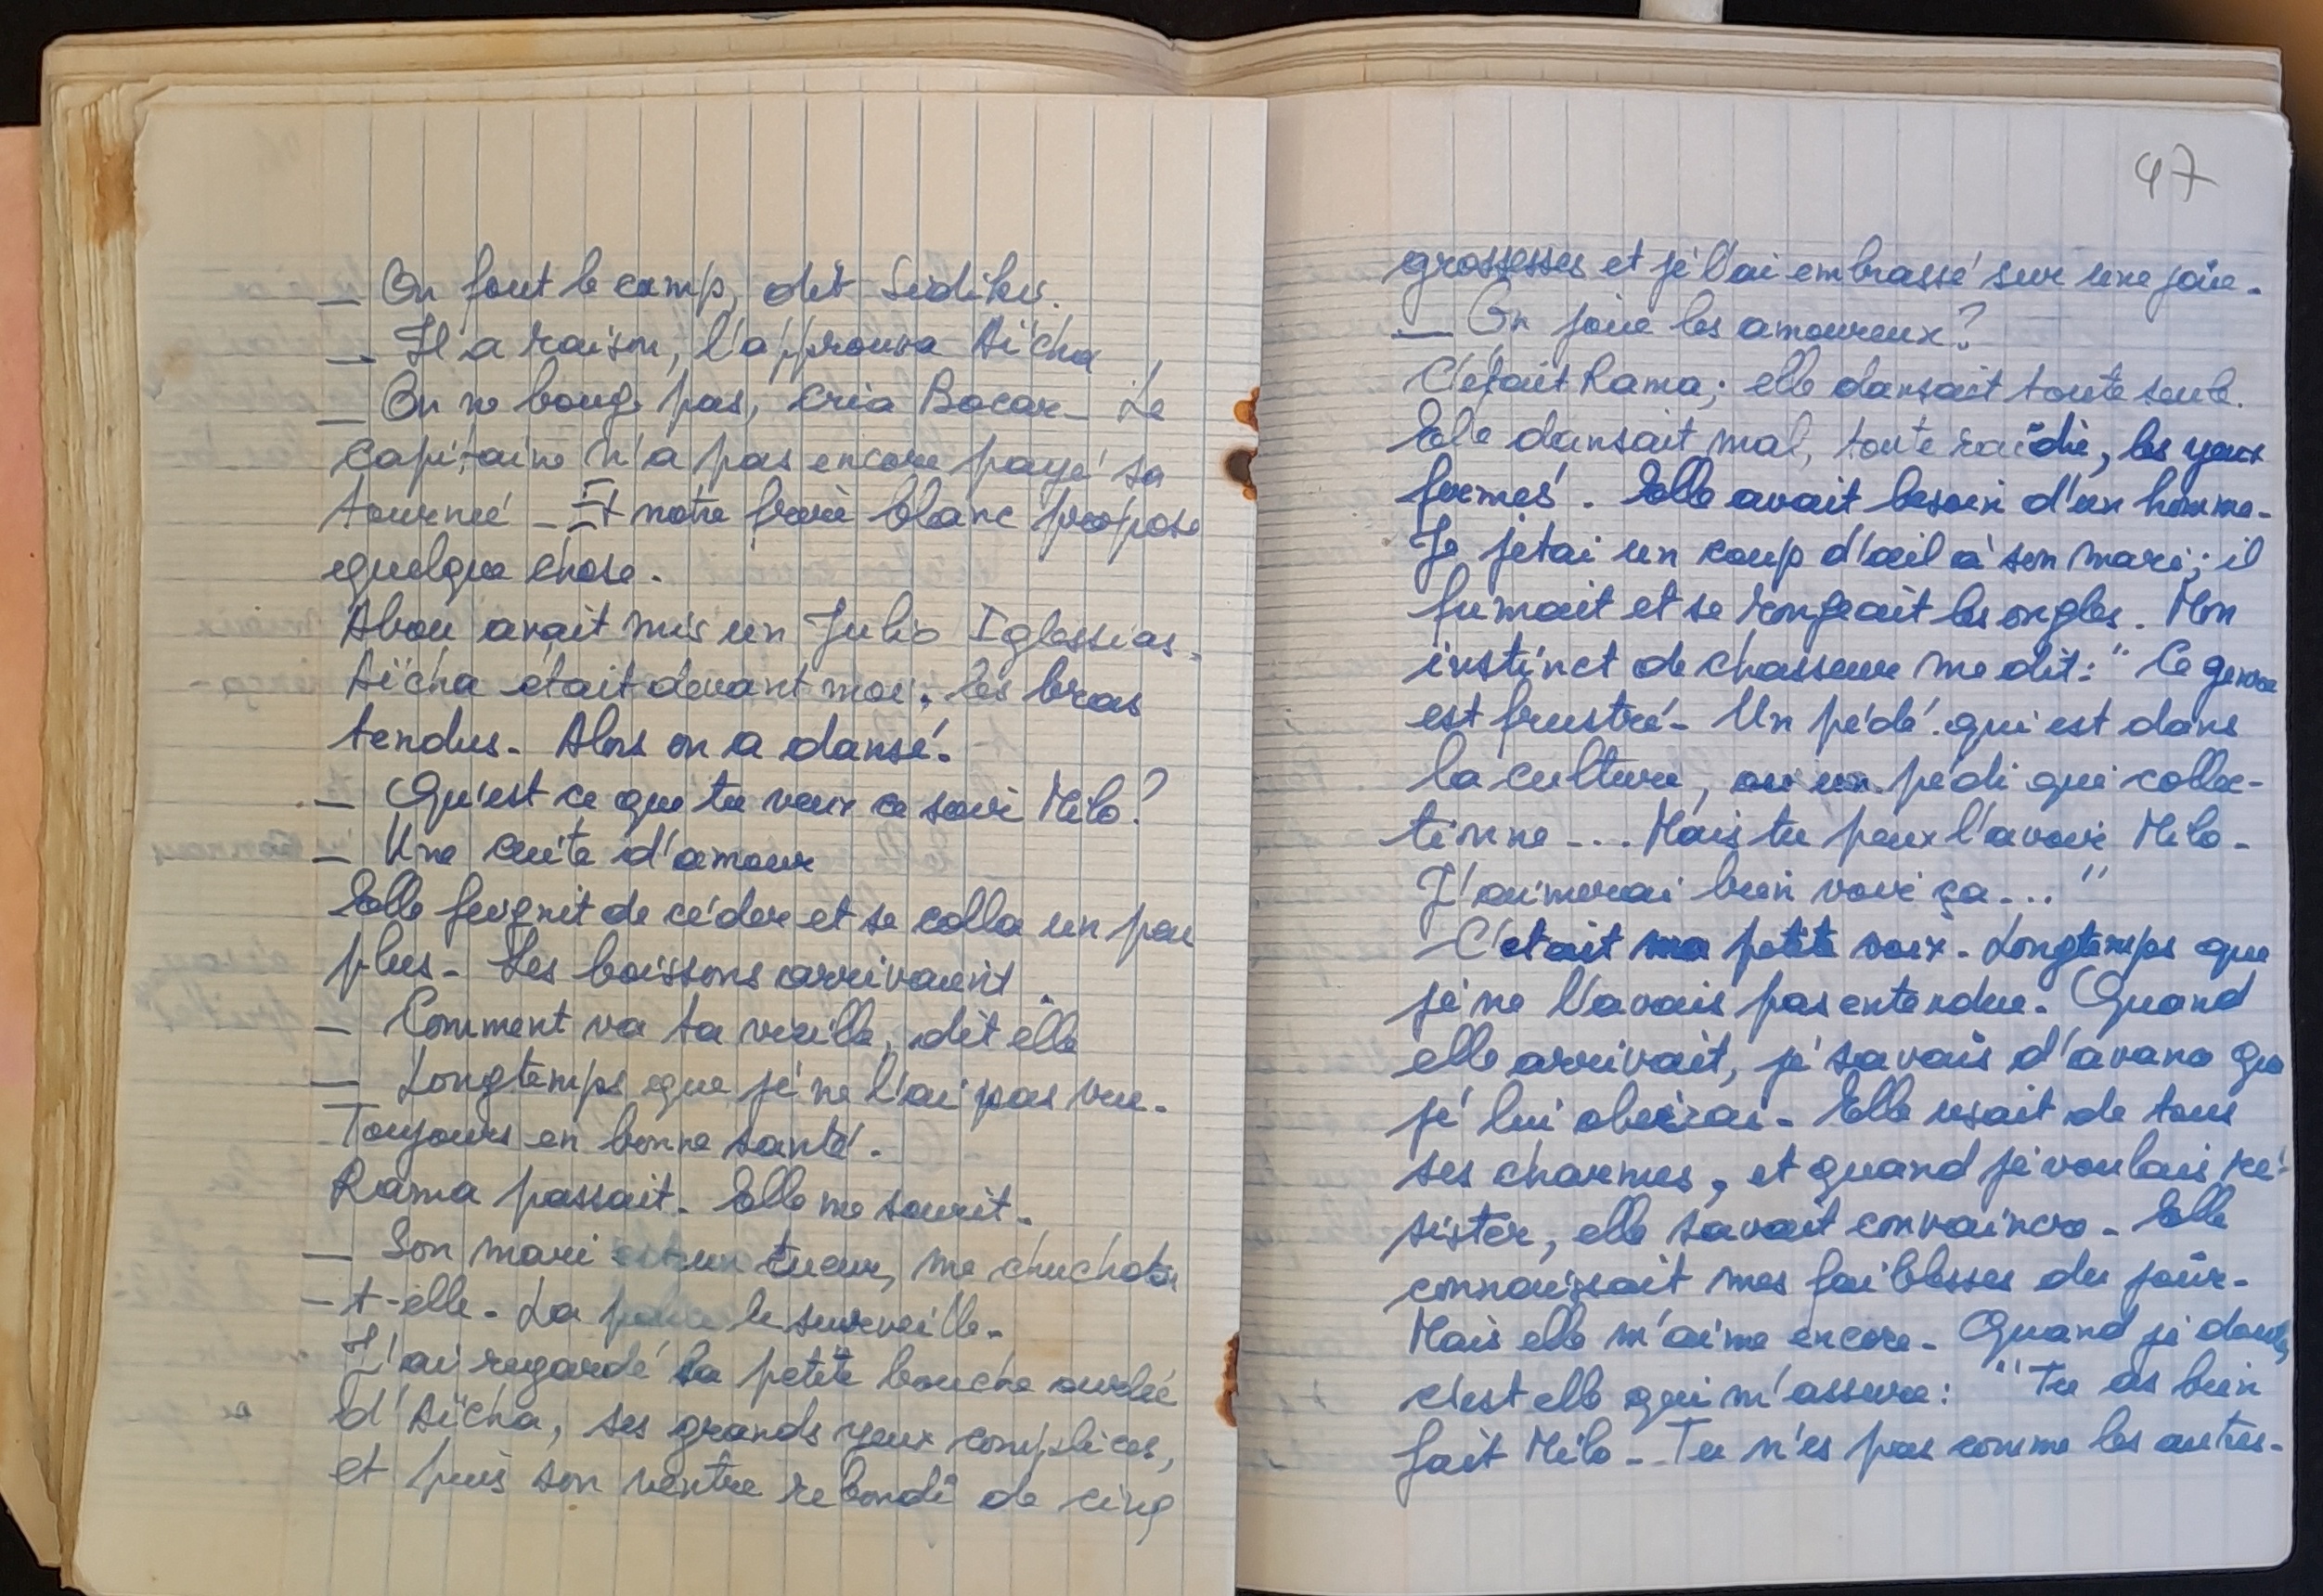 _ On fout le camp, dit Sidikis.
_ Il a raison, l'approuva Aïcha
_ On ne bouge pas, cria Bocar - Le
capitaine n'a pas encore payé sa
tournée - Et notre frère blanc propose
quelque chose.
Abou avait mis un Julio Iglessias.
Aïcha était devant moi. Les bras
tendus. Alors on a dansé.
_ Qu'est ce que tu veux ce soir Milo?
_ Une cuite d'amour
Elle feignit de céder et se colla un peu
plus - Les boissons arrivaient.
_ Comment va ta vieille, dit elle
_ Longtemps que je ne l'ai pas vue.
Toujours en bonne santé.
Rama passait. Elle me sourit.
_ Son mari est un tueur, me chuchota
- t-elle. La police le surveille.
J'ai regardé la petite bouche ourlée
d'Aïcha, ses grands yeux complices,
et puis son ventre rebondi de cinq
47
grossesses et je l'ai embrassé sur une joue.
_ On joue les amoureux?
C'était Rama; elle dansait toute seule.
Elle dansait mal, toute raidie, les yeux
fermés. Elle avait besoin d'un homme.
Je jetai un coup d'œil à son mari; il
fumait et se rongeait les ongles. Mon
instinct de chasseur me dit: " Ce genre
est frustré - Un pédé qui est dans
la culture, ou un pédé qui collec-
tionne .... Mais tu peux l'avoir Milo -
J'aimerai bien voir ça... "
C'était ma petite voix. Longtemps que
je ne l'avais pas entendue. Quand
elle arrivait, je savais d'avance que
je lui obéirai - Elle usait de tous
ses charmes, et quand je voulais ré-
sister, elle savait convaincre - Elle
connaissait mes faiblesses du jour -
Mais elle m'aime encore - Quand je doute,
c'est elle qui m'assure: " Tu as bien
fait Milo - Tu n'es pas comme les autres -